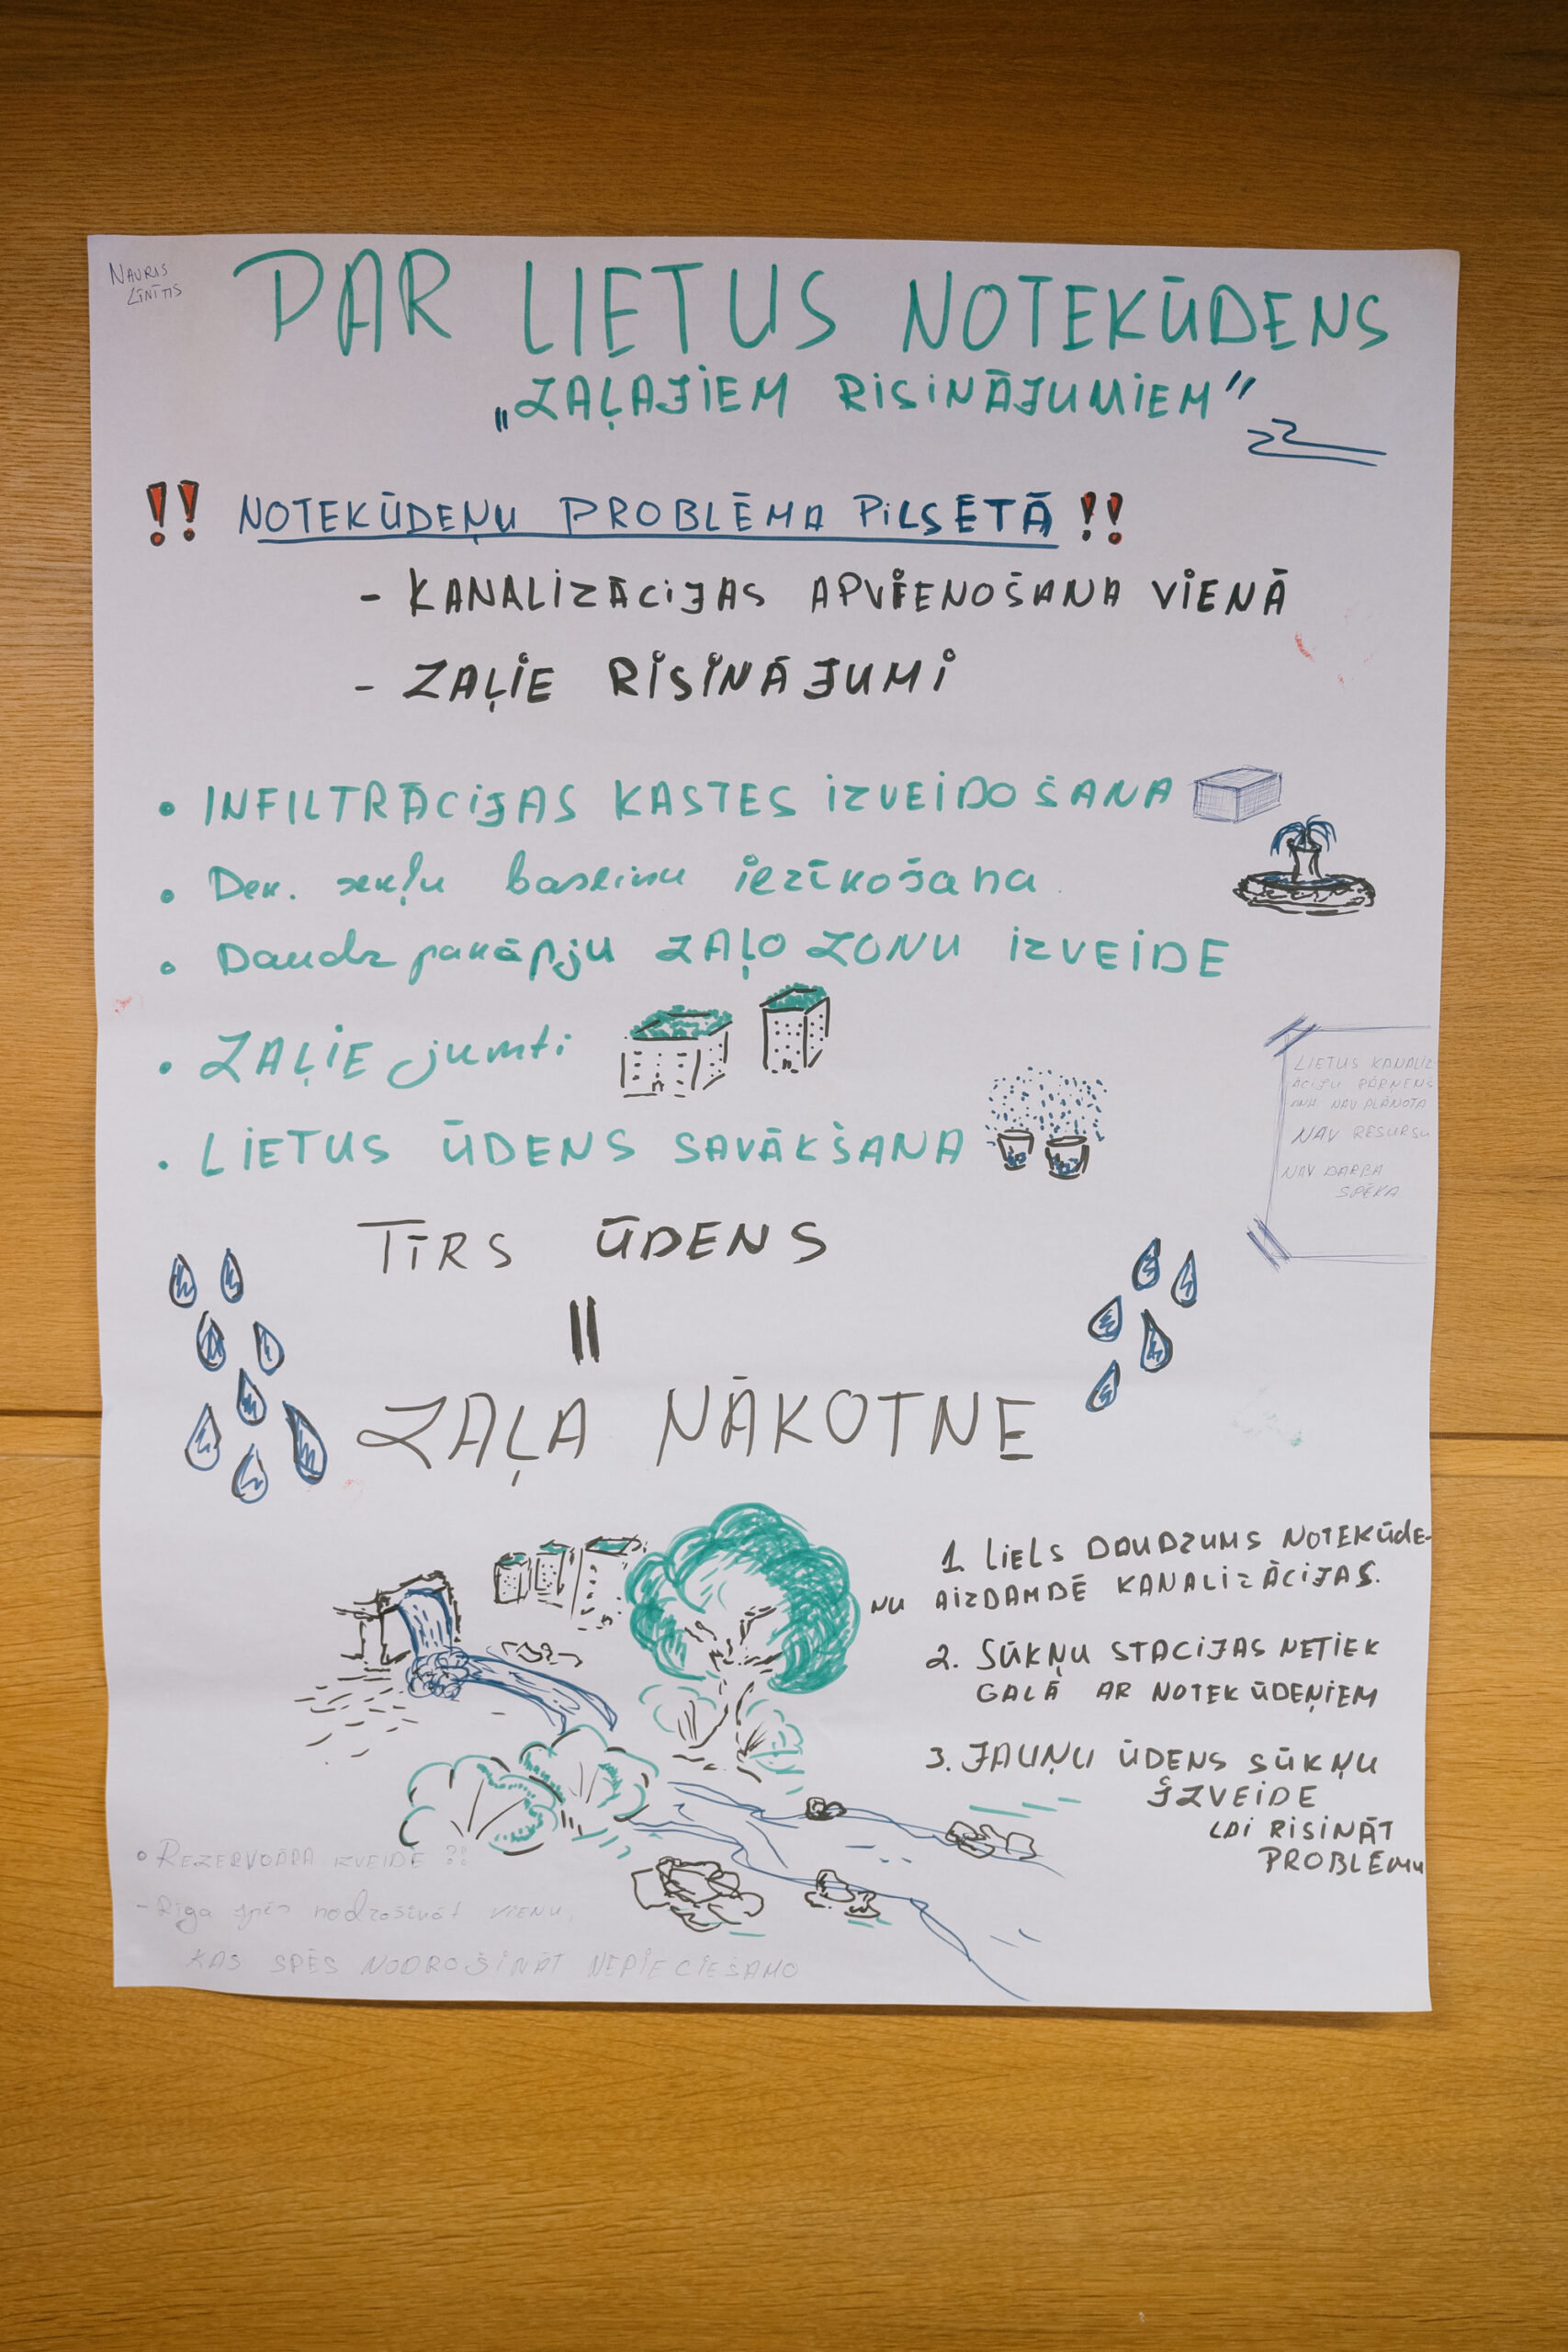 NAURIS
LĪNĪTIS
PAR LIETUS NOTEKŪDENS
„ZAĻAJIEM RISINĀJUMIEM”
!! NOTEKŪDEŅU PROBLĒMA PILSĒTĀ !!
- KANALIZĀCIJAS APVIENOŠANA VIENĀ
- ZAĻIE RISINĀJUMI
• INFILTRĀCIJAS KASTES IZVEIDOŠANA
• Dek. sekļu baseinu ierīkošana
• Daudz pakāpju ZAĻO ZONU IZVEIDE
• ZAĻIE jumti
• LIETUS ŪDENS SAVĀKŠANA
LIETUS KANALIZ
ĀCIJU
NAV PLĀNOTA
NAV RESURSU
NAV DARBA
SPĒKA
TĪRS ŪDENS
=
ZAĻA NĀKOTNE
1. LIELS DAUDZUMS NOTEKŪDE-
ŅU AIZDAMBĒ KANALIZĀCIJAS.
2. SŪKŅU STACIJAS NETIEK
GALĀ AR NOTEKŪDEŅIEM
3. JAUŅU ŪDENS SŪKŅU
IZVEIDE
LAI RISINĀT
PROBLĒMU
• REZERVOĀRA IZVEIDE ?!
- Rīga spēs nodrošināt vienu,
KAS SPĒS NODROŠINĀT NEPIECIEŠAMO